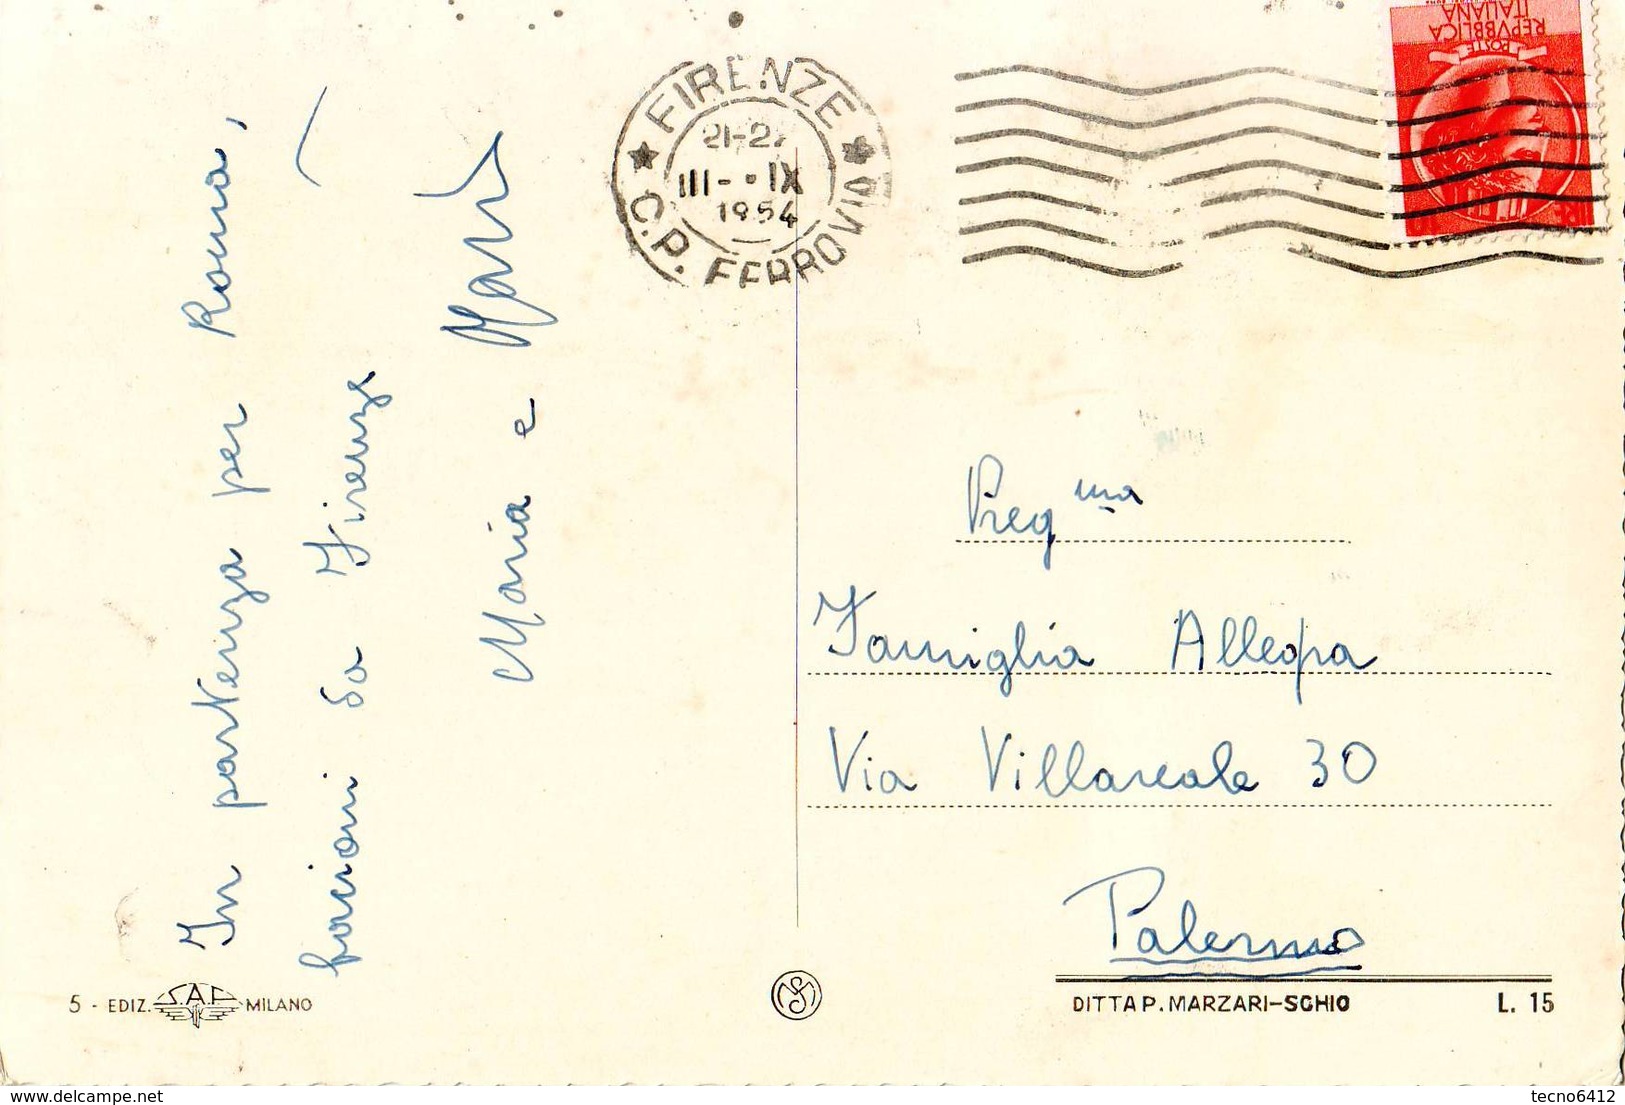 In partenza per Roma,
bacioni da Firenze
Maria e
FIRENZE
21-22
III - IX
1954
C.P. FERROVIA
POSTE
REPVBBLICA
ITALIANA
Preg ma
Famiglia Allegra
Via Villareale 30
Palermo
5 - EDIZ. S.A.F. MILANO
DITTA P. MARZARI-SCHIO
L. 15
www.delcampe.net
tecno6412